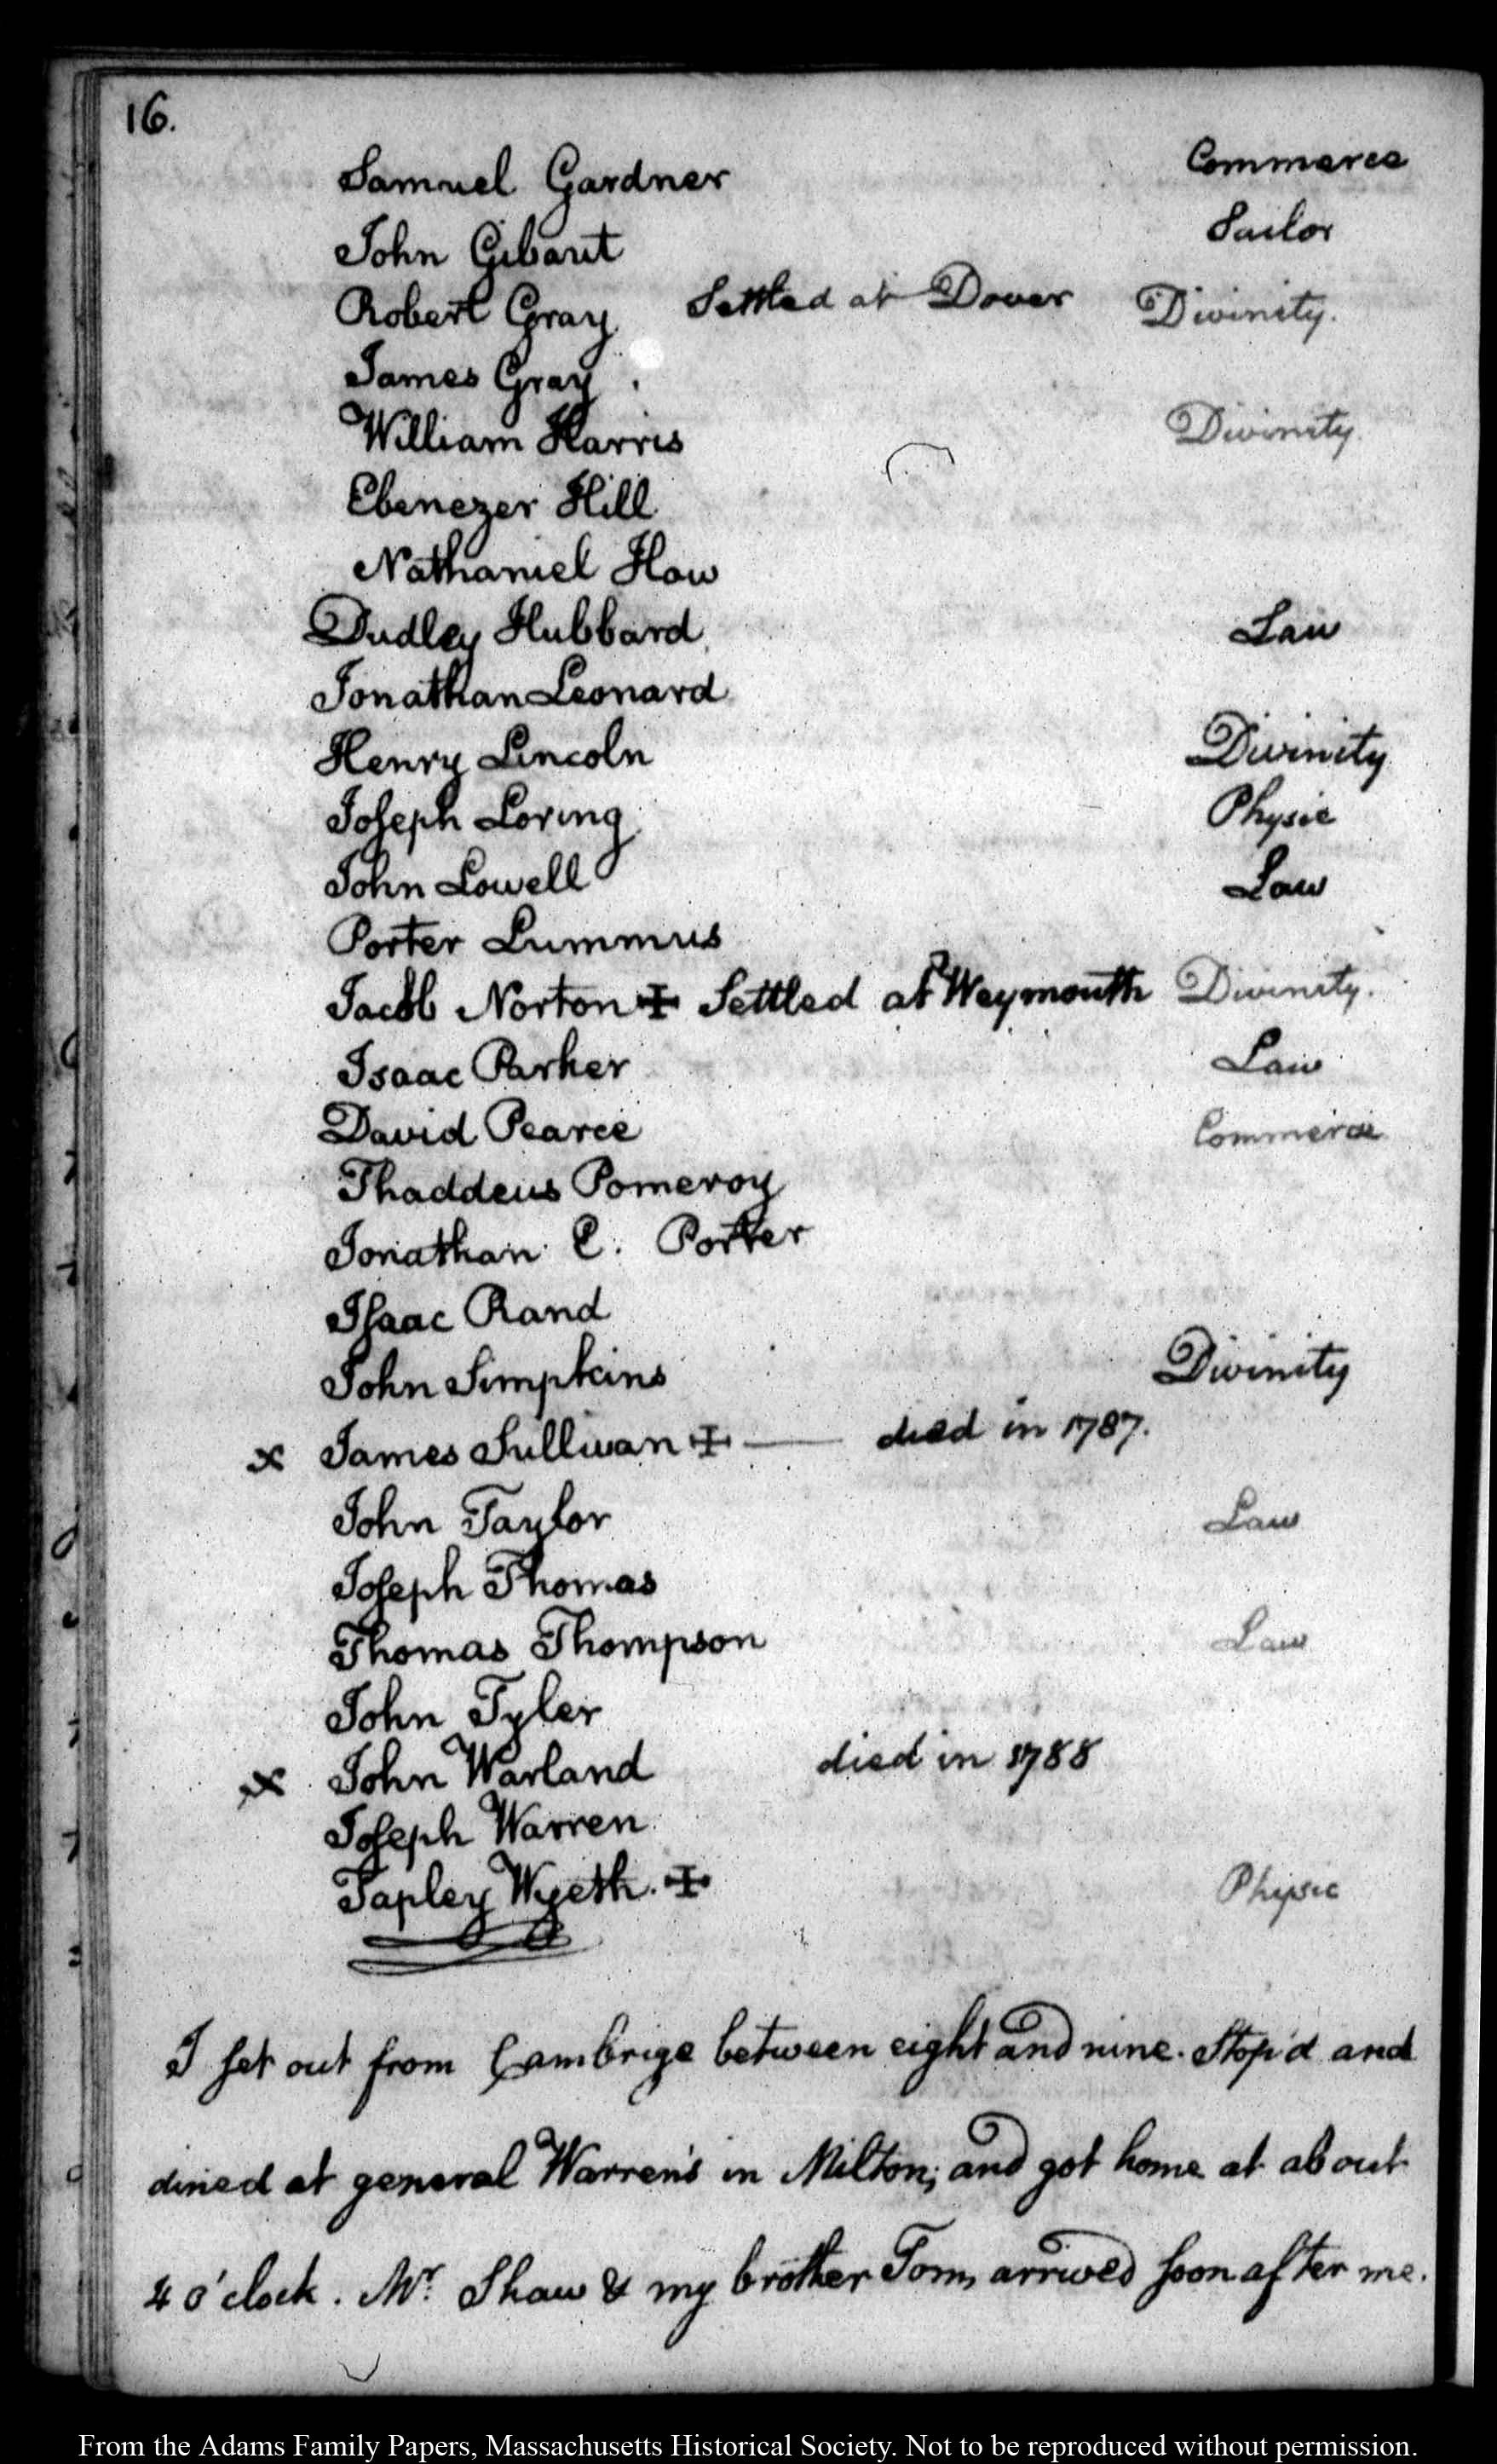 16.
Samuel Gardner Commerce
John Gibaut Sailor
Robert Gray Settled at Dover Divinity.
James Gray
William Harris Divinity.
Ebenezer Hill
Nathaniel How
Dudley Hubbard Law
Jonathan Leonard
Henry Lincoln Divinity
Joseph Loring Physic
John Lowell Law
Porter Lummus
Jacob Norton ✠ Settled at Weymouth Divinity.
Isaac Parker Law
David Pearce Commerce
Thaddeus Pomeroy
Jonathan E. Porter
Isaac Rand
John Simpkins Divinity
x James Sullivan ✠ — died in 1787.
John Taylor Law
Joseph Thomas
Thomas Thompson Law
John Tyler
x John Warland died in 1788
Joseph Warren
Tapley Wyeth. ✠ Physic
I set out from Cambrige between eight and nine. Stop'd and
dined at general Warren's in Milton; and got home at about
4 o'clock. Mr. Shaw & my brother Tom, arrived soon after me.
From the Adams Family Papers, Massachusetts Historical Society. Not to be reproduced without permission.